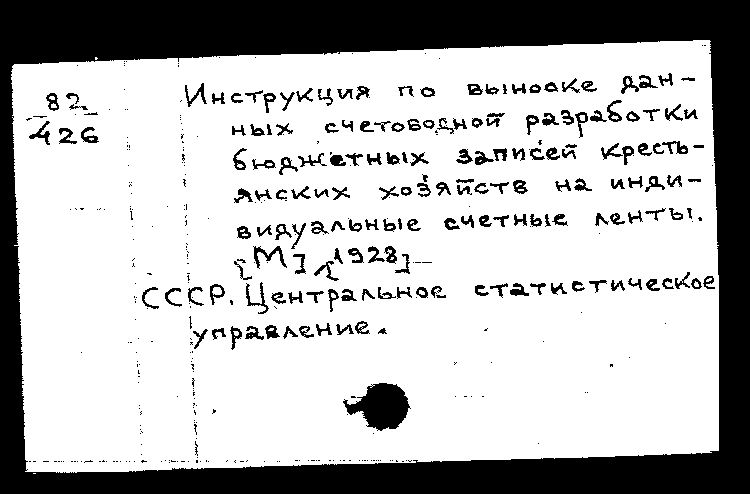 82
426
Инструкция по выноске дан-
ных счетоводной разработки
бюджетных записей кресть-
янских хозяйств на инди-
видуальные счетные ленты.
[М], [1928]
СССР. Центральное статистическое
управление.